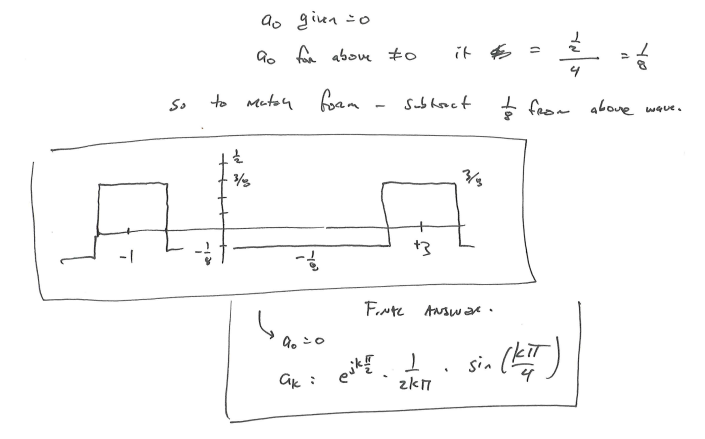 a₀ given = 0
a₀ for above ≠ 0 it = ½/4 = 1/8
So to match form - subtract 1/8 from above wave.
1/2
3/8 3/8
-1 -1/8 -1/8 +3
Final Answer.
a₀ = 0
aₖ : e^{jkπ/2} · 1/2kπ · sin (kπ/4)